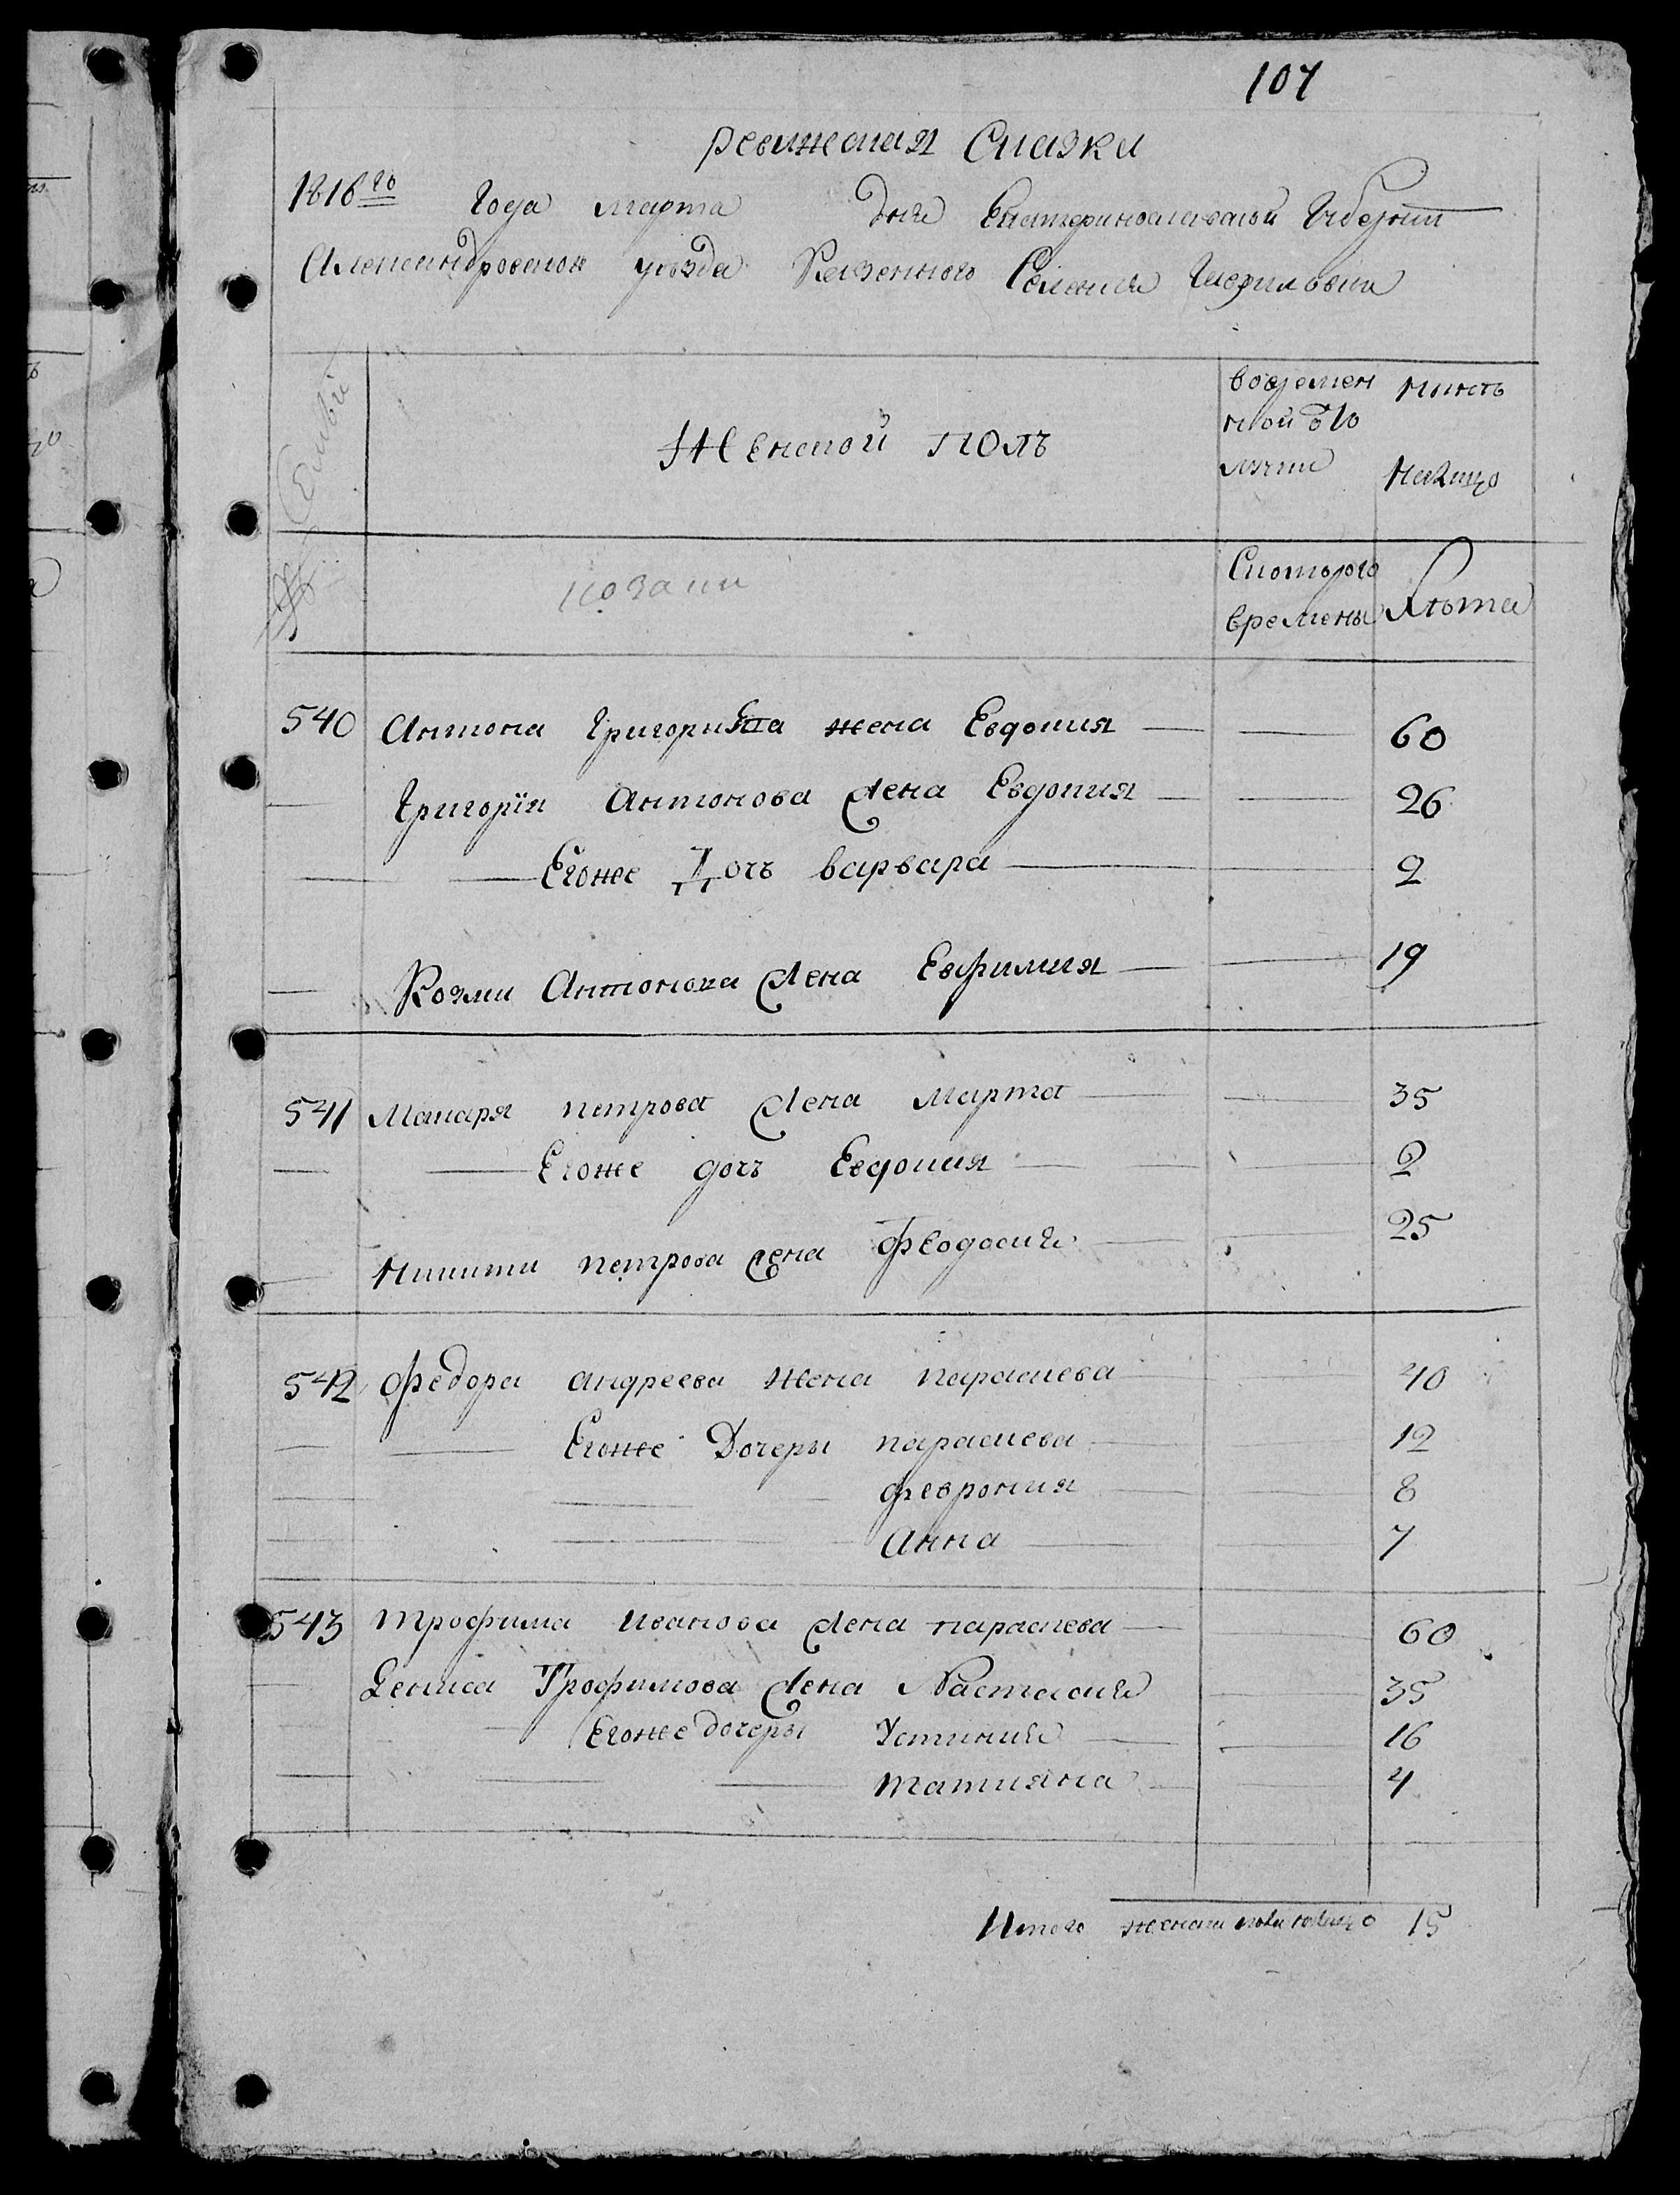 107
Ревижская Сказка
1816го Года Марта Дня Екатеринославской Губернии
Александровской уезда Казенного Селения
Семьи
Женской полъ
вовремен
ной отъ
лучки
ныне
налицо
№
козаки
Скоторого
времены
Лета
540 Антона Григорьева жена Евдокия — — 60
— Григория Антонова жена Евдокия — — 26
— — Егоже Дочъ варвара — 2
— Козми Антонова жена Евфимия — — 19
541 Макаря петрова жена Марта — — 35
— — Егоже дочъ Евдокия — — 2
— Никити петрова жена Феодосия — — 25
542 Федора андреева жена параскева 40
— — Егоже Дочери параскева — 12
— — — феврония — — 8
— — — Анна — — 7
543 Трофима Иванова жена параскева — — 60
— Дениса Трофимова жена Настасия — 35
— — Егоже дочеры Устиния — — 16
— — — Татияна — — 4
Итого женска пола налицо 15